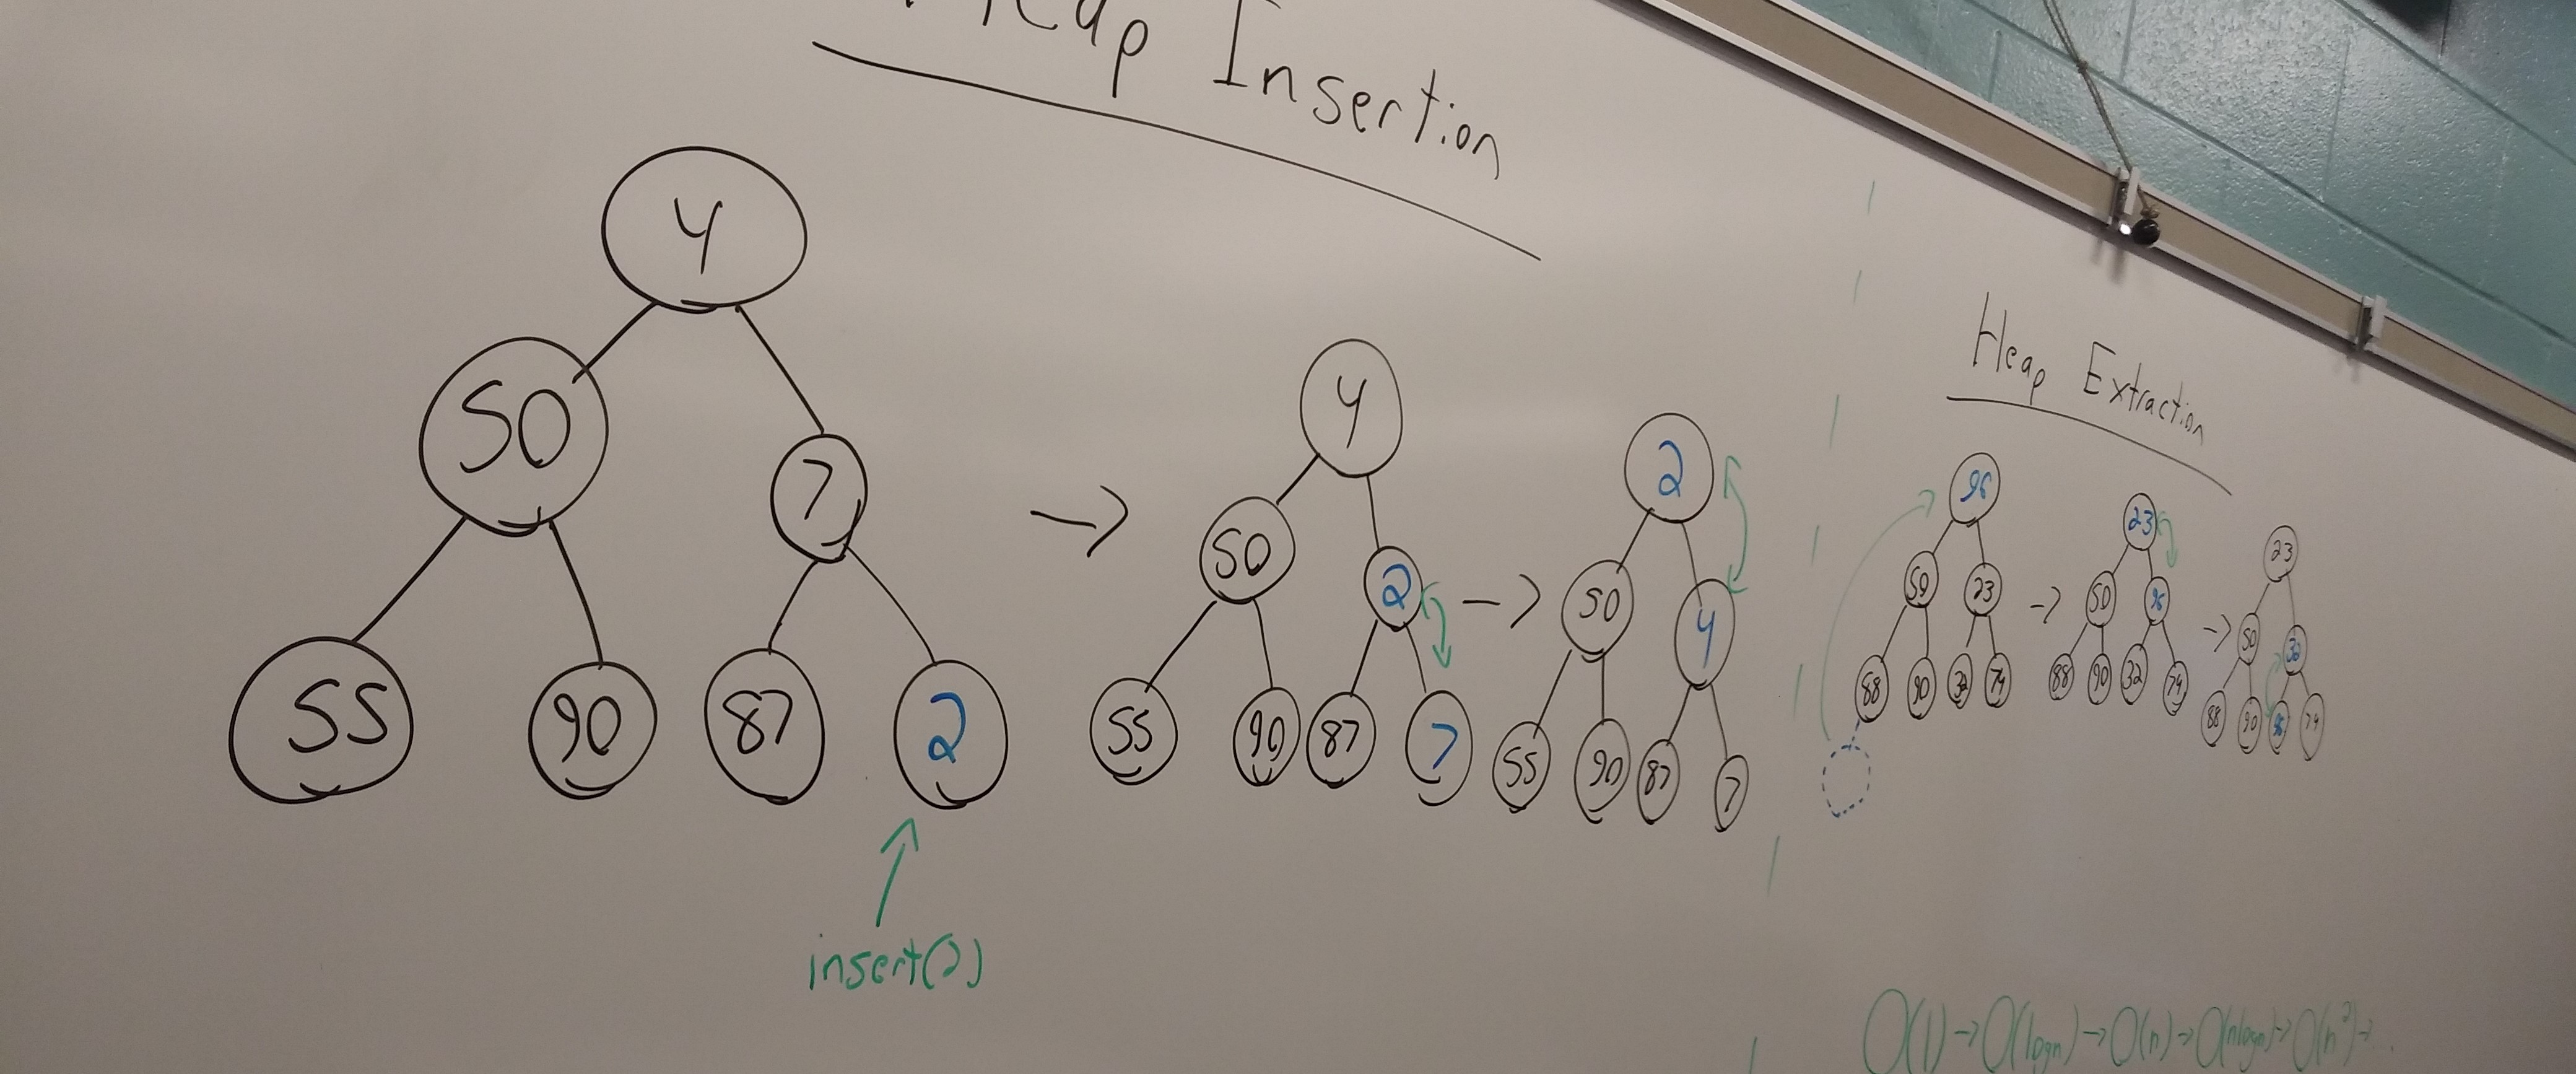 Heap Insertion
4
50 7
55 90 87 2
insert(2)
->
4
50 2
55 90 87 7
->
2
50 4
55 90 87 7
Heap Extraction
96
50 23
88 90 32 74
->
23
50 96
88 90 32 74
->
23
50 32
88 90 96 74
O(1) -> O(logn) -> O(n) -> O(nlogn) -> O(n²) ->